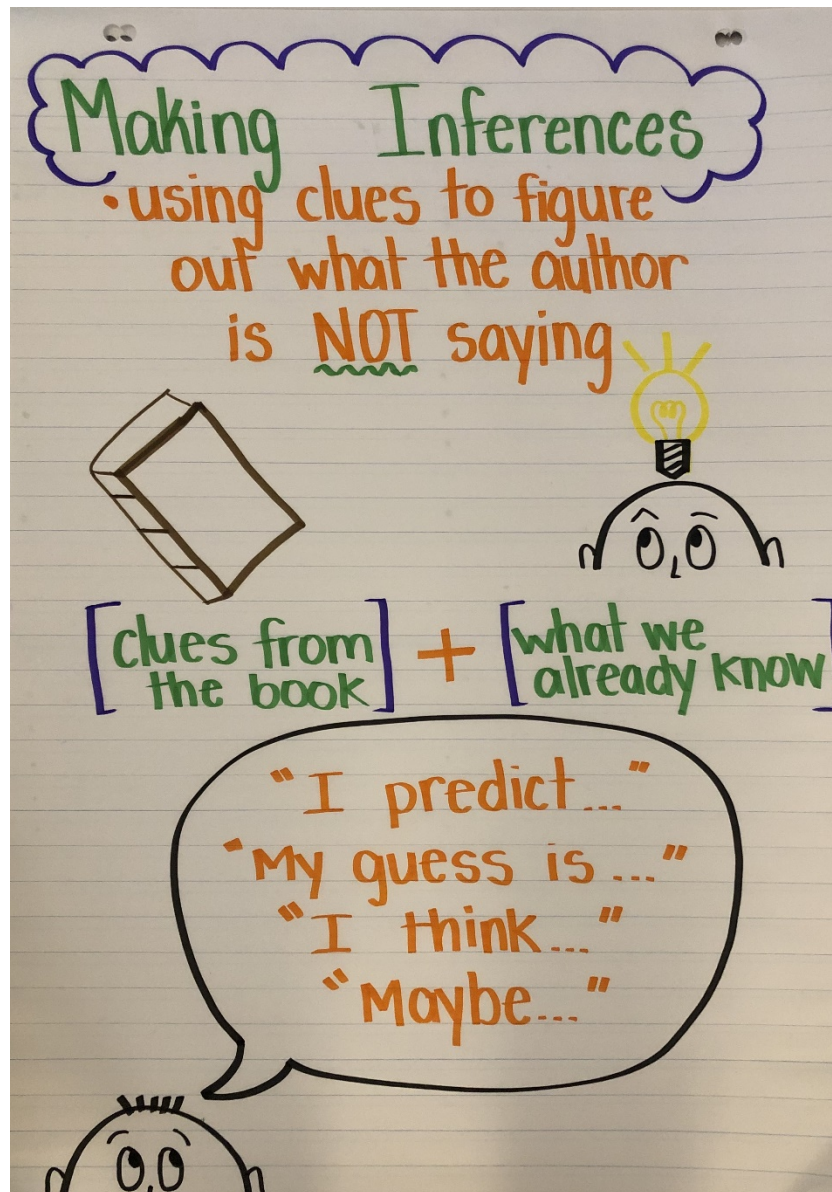 Making Inferences
• using clues to figure
out what the author
is NOT saying
[clues from
the book] + [what we
already know]
"I predict..."
"My guess is..."
"I think..."
"Maybe..."